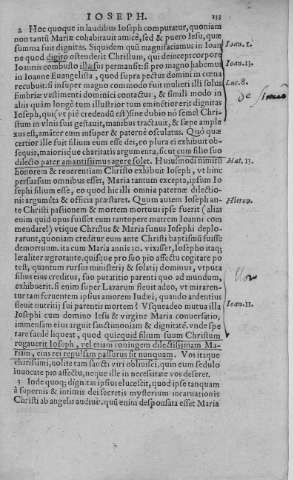 IOSEPH. 233
2 Hoc quoque in laudibus Ioseph computatur, quoniam
non tantū Mariæ cohabitauit amicè, sed & puero Iesu, quæ
summa fuit dignitas. Siquidem quū magnifaciamus in Ioan Ioan. 1.
ne quod digito ostenderit Christum, qui deinceps corpore
Ioannis combusto illæsus permansit: si pro magno habemus Ioan. 13.
in Ioanne Euangelista, quod supra pectus domini in cœna
recubuit: si insuper magno modo fuit mulieri illi solus Luc. 8.
fimbriæ vestimenti dominici contactus, & simili modo in
aliis quàm longè tum illustrior tum eminentior erit dignitas
Ioseph, qui, vt piè credendū est, sine dubio nō semel Christ
um in vlnis suis gestauit, manibus tractauit, & sæpe ample
xus est, amāter eum insuper & paternè osculatus. Quò quæ
certior ille fuit filium eum esse dei, eo plura ei exhibuit ob-
sequia, maiora eo charitatis argumenta, sicut cum filio suo
dilecto pater amantissimus agere solet. Huiusmodi nimirū Mat. 13.
honorem & reuerentiam Christo exhibuit Ioseph, vt hinc
persuasum omnibus esset, Maria tantum excepta, ipsum Io
sephi filium esse, eo quod hic illi omnia paternæ dilectio-
nis argumēta & officia præstaret. Quum autem Ioseph an-
te Christi passionem & mortem mortuus ipse fuerit (alias
enim quid opus fuisset eum tantopere matrem Ioanni com
mendare) vtique Christus & Maria funus Iosephi deplo-
rarunt, quoniam creditur eum ante Christi baptismū fuisse
demortuum, ita cum Maria annis 30. vixisset, Iosepho itaq;
letaliter ægrotante, quisque pro suo piò affectu cogitare po
test, quantum rursus ministerij & solatij dominus, vtputa
filius eius creditus, suo putatitio parenti quo ad mundum,
exhibuerit. si enim super Lazarum fleuit adeo, vt mirarentur
tam feruentem ipsius amorem Iudæi, quando ardentius
fleuit nutritij sui parentis mortem? Vsqueadeo mutua illa Ioan. 11.
Iosephi cum domino Iesu & virgine Maria conuersatio,
immensam eius arguit sanctimoniam & dignitatē. vnde spe
rare facilè liqueat, quod quicquid filium suum Christum
rogauerit Ioseph, vel etiam coniugem dilectissimam Ma-
riam, eius rei repulsam passurus sit nunquam. Vos itaque
charissimi, nolite tam sancti viri obliuisci, quin eum sedulo
inuocate pio affectu, neque ille in necessitate vos deseret.
3 Inde quoq; dignitas ipsius elucescit, quod ipse tanquam
à supernis & intimis dei secretis mysterium incarnationis
Christi ab angelis audiuit. quū enim desponsata esset Maria